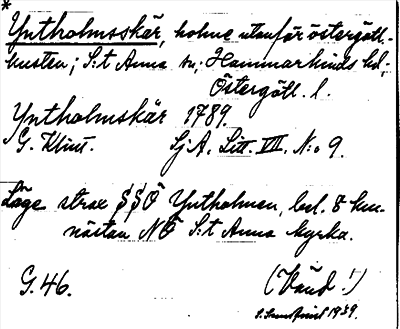 *
Yntholmsskär, holme utanför östergötl.-
kusten; S:t Anna sn; Hammarkinds hd,
Östergötl. l.
Yntholmskär 1789.
G. Klint. Sj A. Litt. VII. N:o 9.
Läge strax SSÖ Yntholmen, bel. 8 km
nästan NÖ S:t Anna kyrka.
G. 46. (Vänd!)
1939.